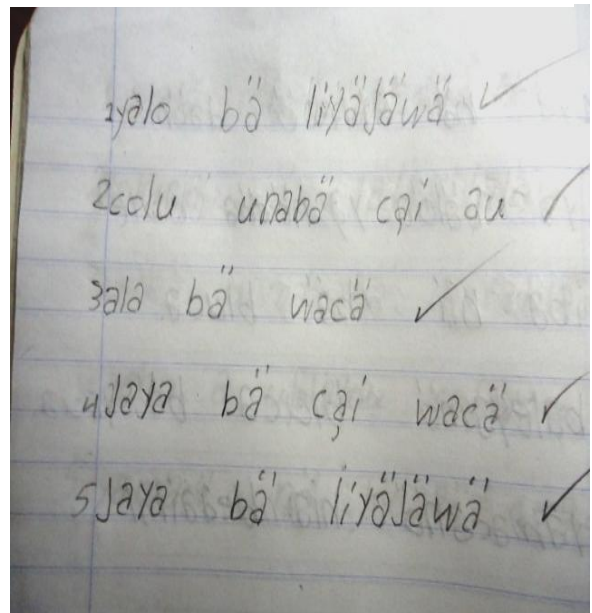 1yalo bä liyäjäwä
2colu unabä cąi au
3ala bä wacä
4Jaya bä cąi wacä
5Jaya bä liyäjäwä